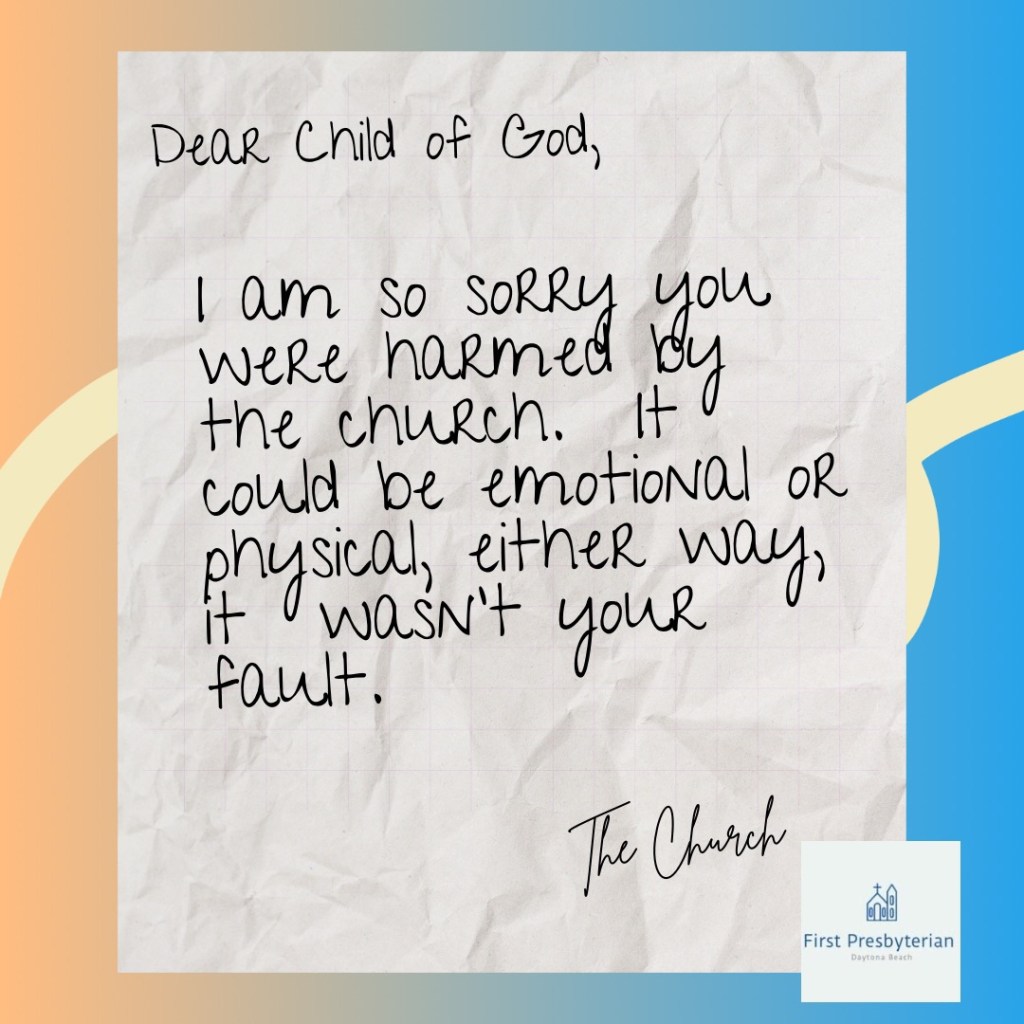 Dear Child of God,
I am so sorry you
were harmed by
the church. It
could be emotional or
physical, either way,
it wasn't your
fault.
The Church
First Presbyterian
Daytona Beach